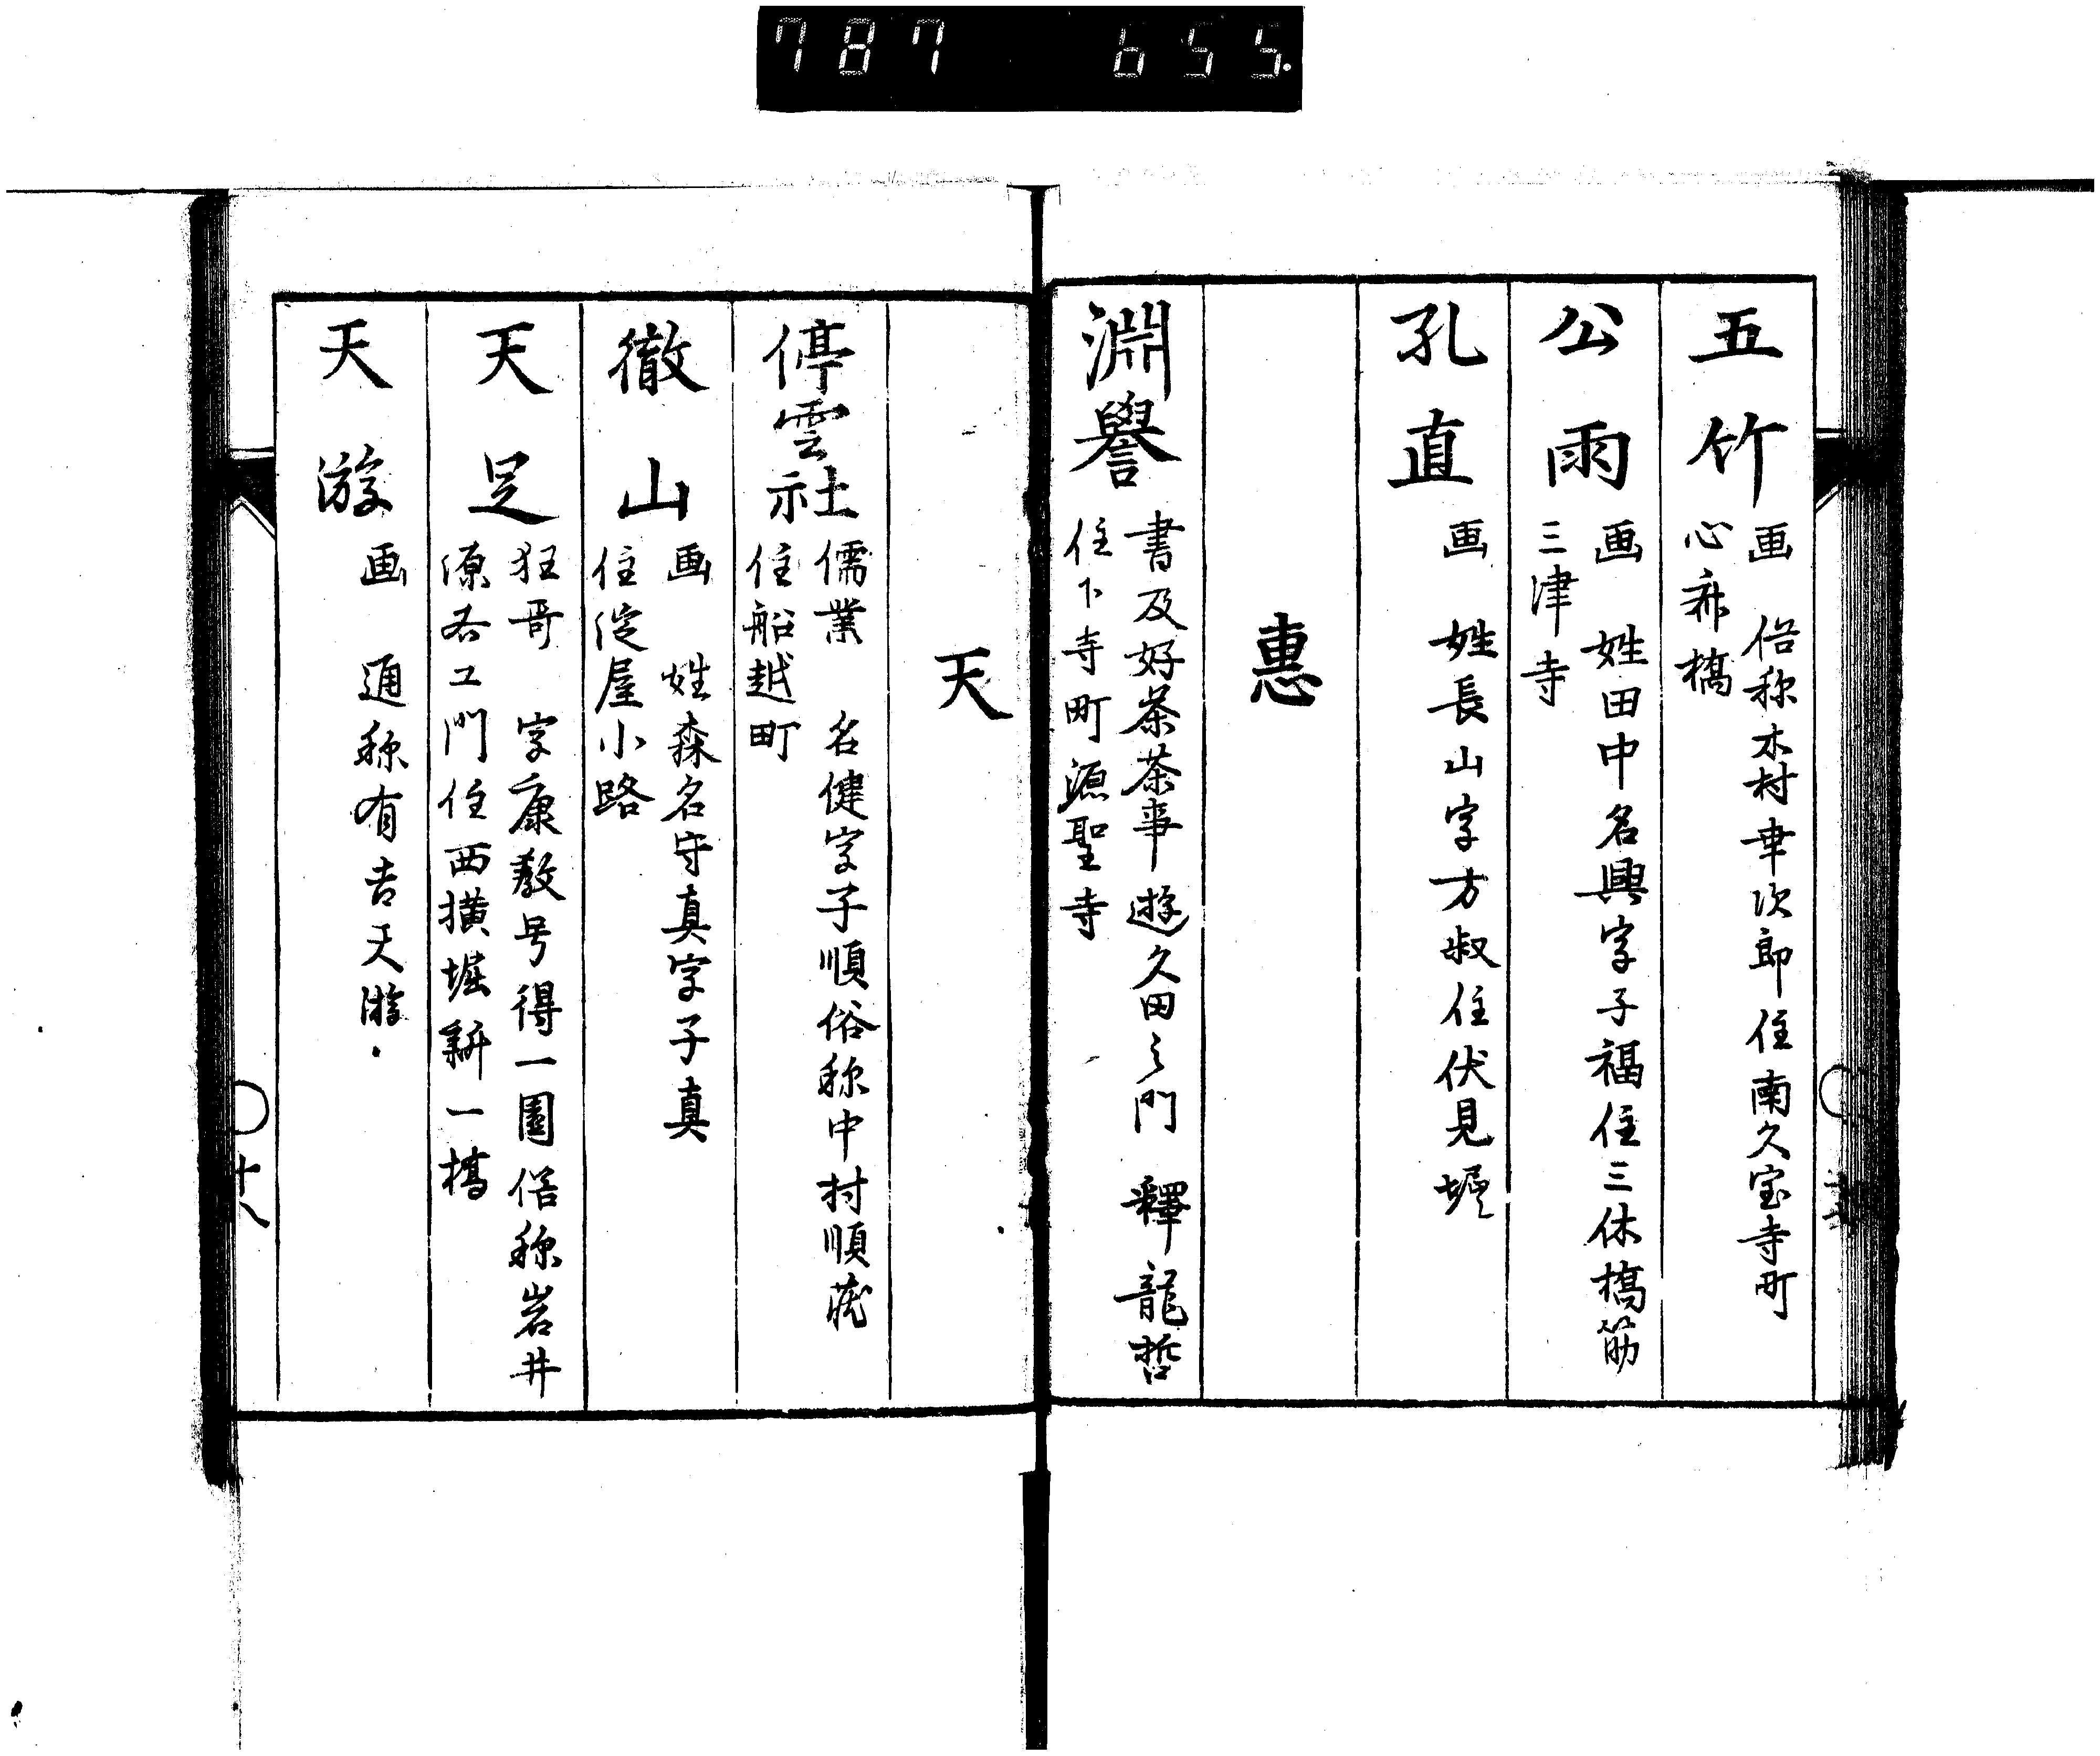 787 655.
五竹
画 俗称木村幸次郎住南久宝寺町
心斎橋
公雨
画 姓田中名興字子福住三休橋筋
三津寺
孔直
画 姓長山字方叔住伏見堀
惠
淵譽
書及好茶茶事遊久田之門 釋龍哲
住下寺町源聖寺
天
停雲社
儒業 名健字子順俗称中村順蔵
住船越町
徹山
画 姓森名守真字子真
住淀屋小路
天足
狂哥 字康教号得一園俗称岩井
源右エ門住西横堀新一橋
天游
画 通称有吉天游
十八